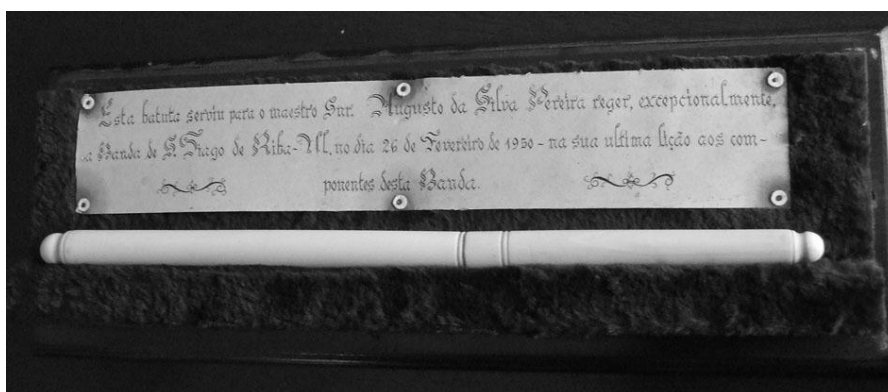 Esta batuta serviu para o maestro Snr. Augusto da Silva Pereira reger, excepcionalmente,
a Banda de S. Tiago de Riba-Ul, no dia 26 de Fevereiro de 1950 - na sua ultima lição aos com-
ponentes desta Banda.